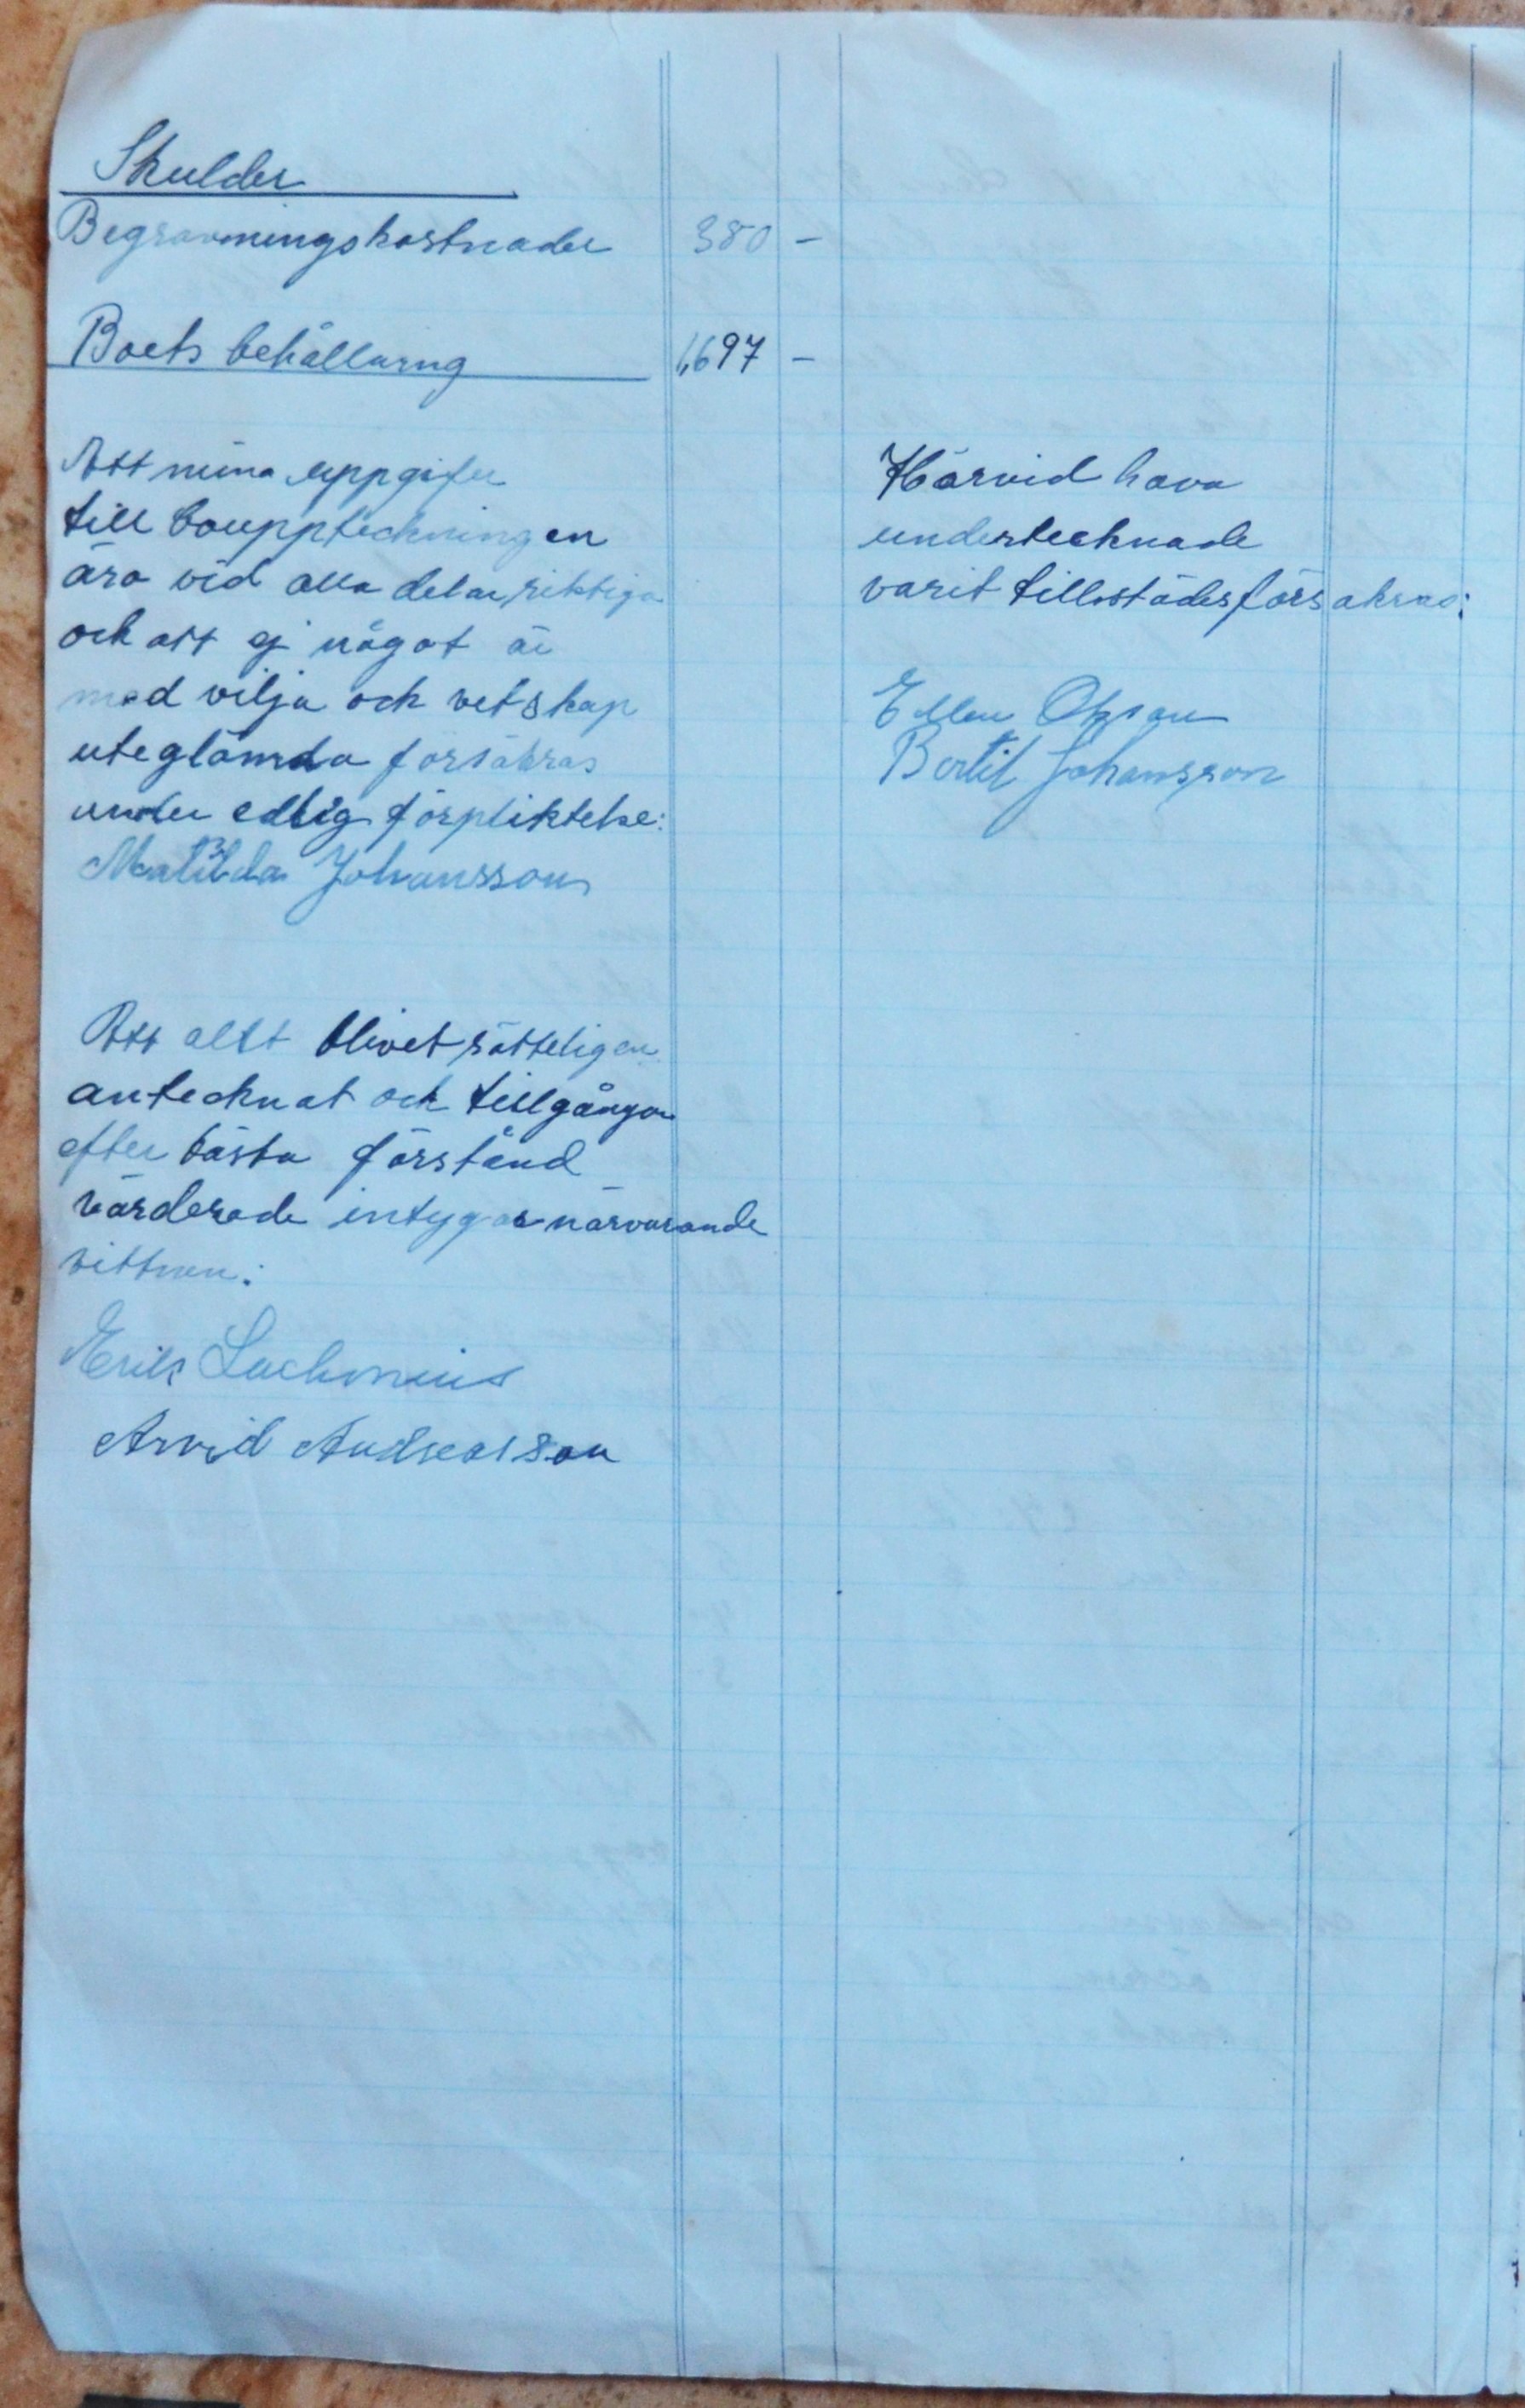 Skulder
Begravningskostnader 380 –
Boets behållning 1,697 –
Att mina uppgifter
till bouppteckningen
äro vid alla delar riktiga
och att ej något är
med vilja och vetskap
uteglömda försäkras
under edlig förpliktelse:
Matilda Johansson
Att allt blivet rätteligen
antecknat och tillgången
efter bästa förstånd
värderade intygar närvarande
vittnen:
Erik Lachonius
Arvid Andreasson
Härvid hava
undertecknade
varit tillstädes försäkras:
Ellen Olsson
Bertil Johansson